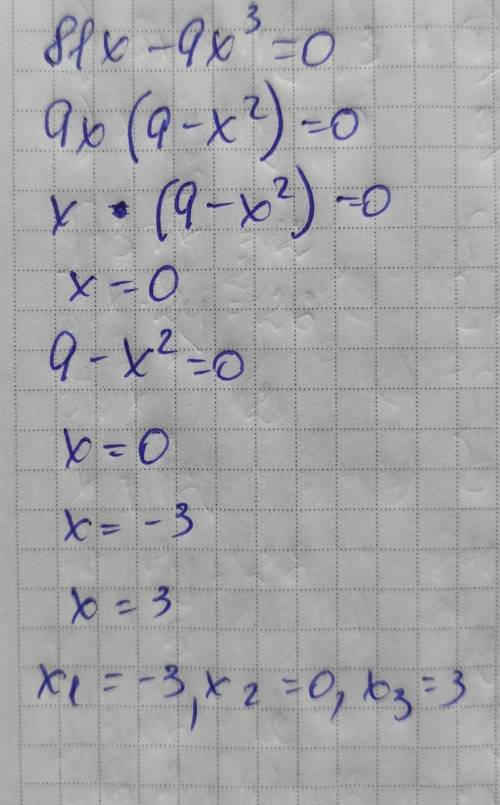 81x - 9x³ = 0
9x (9 - x²) = 0
x · (9 - x²) = 0
x = 0
9 - x² = 0
x = 0
x = -3
x = 3
x₁ = -3, x₂ = 0, x₃ = 3